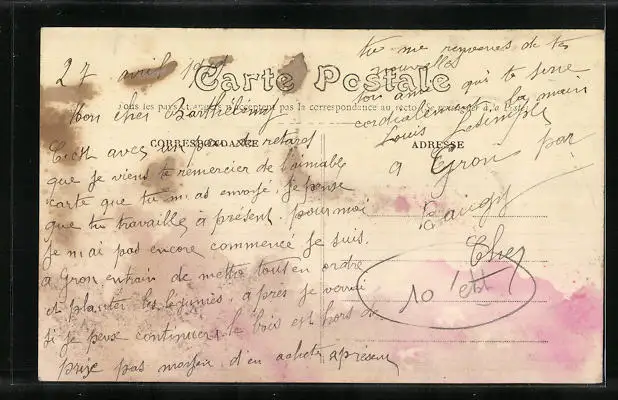 27 avril 19
Carte Postale
Tous les pays étrangers n'acceptent pas la correspondance au recto (Se renseigner à la Poste)
CORRESPONDANCE
Mon cher Barthélémy
C'est avec un peu de retard
que je viens te remercier de l'aimable
carte que tu m'as envoyé. Je pense
que tu travaille à présent. pour moi
je n'ai pas encore commencé je suis
a Gron entrain de mettre tout en ordre
et planter les légumes, après je verrai
si je peux continuer le bois est hors de
prix pas moyen d'en acheter a présent
tu me renverras de tes
nouvelles
ton ami qui te serre
cordialement la main
Louis
ADRESSE
a Gron par
Baugy
Cher
10